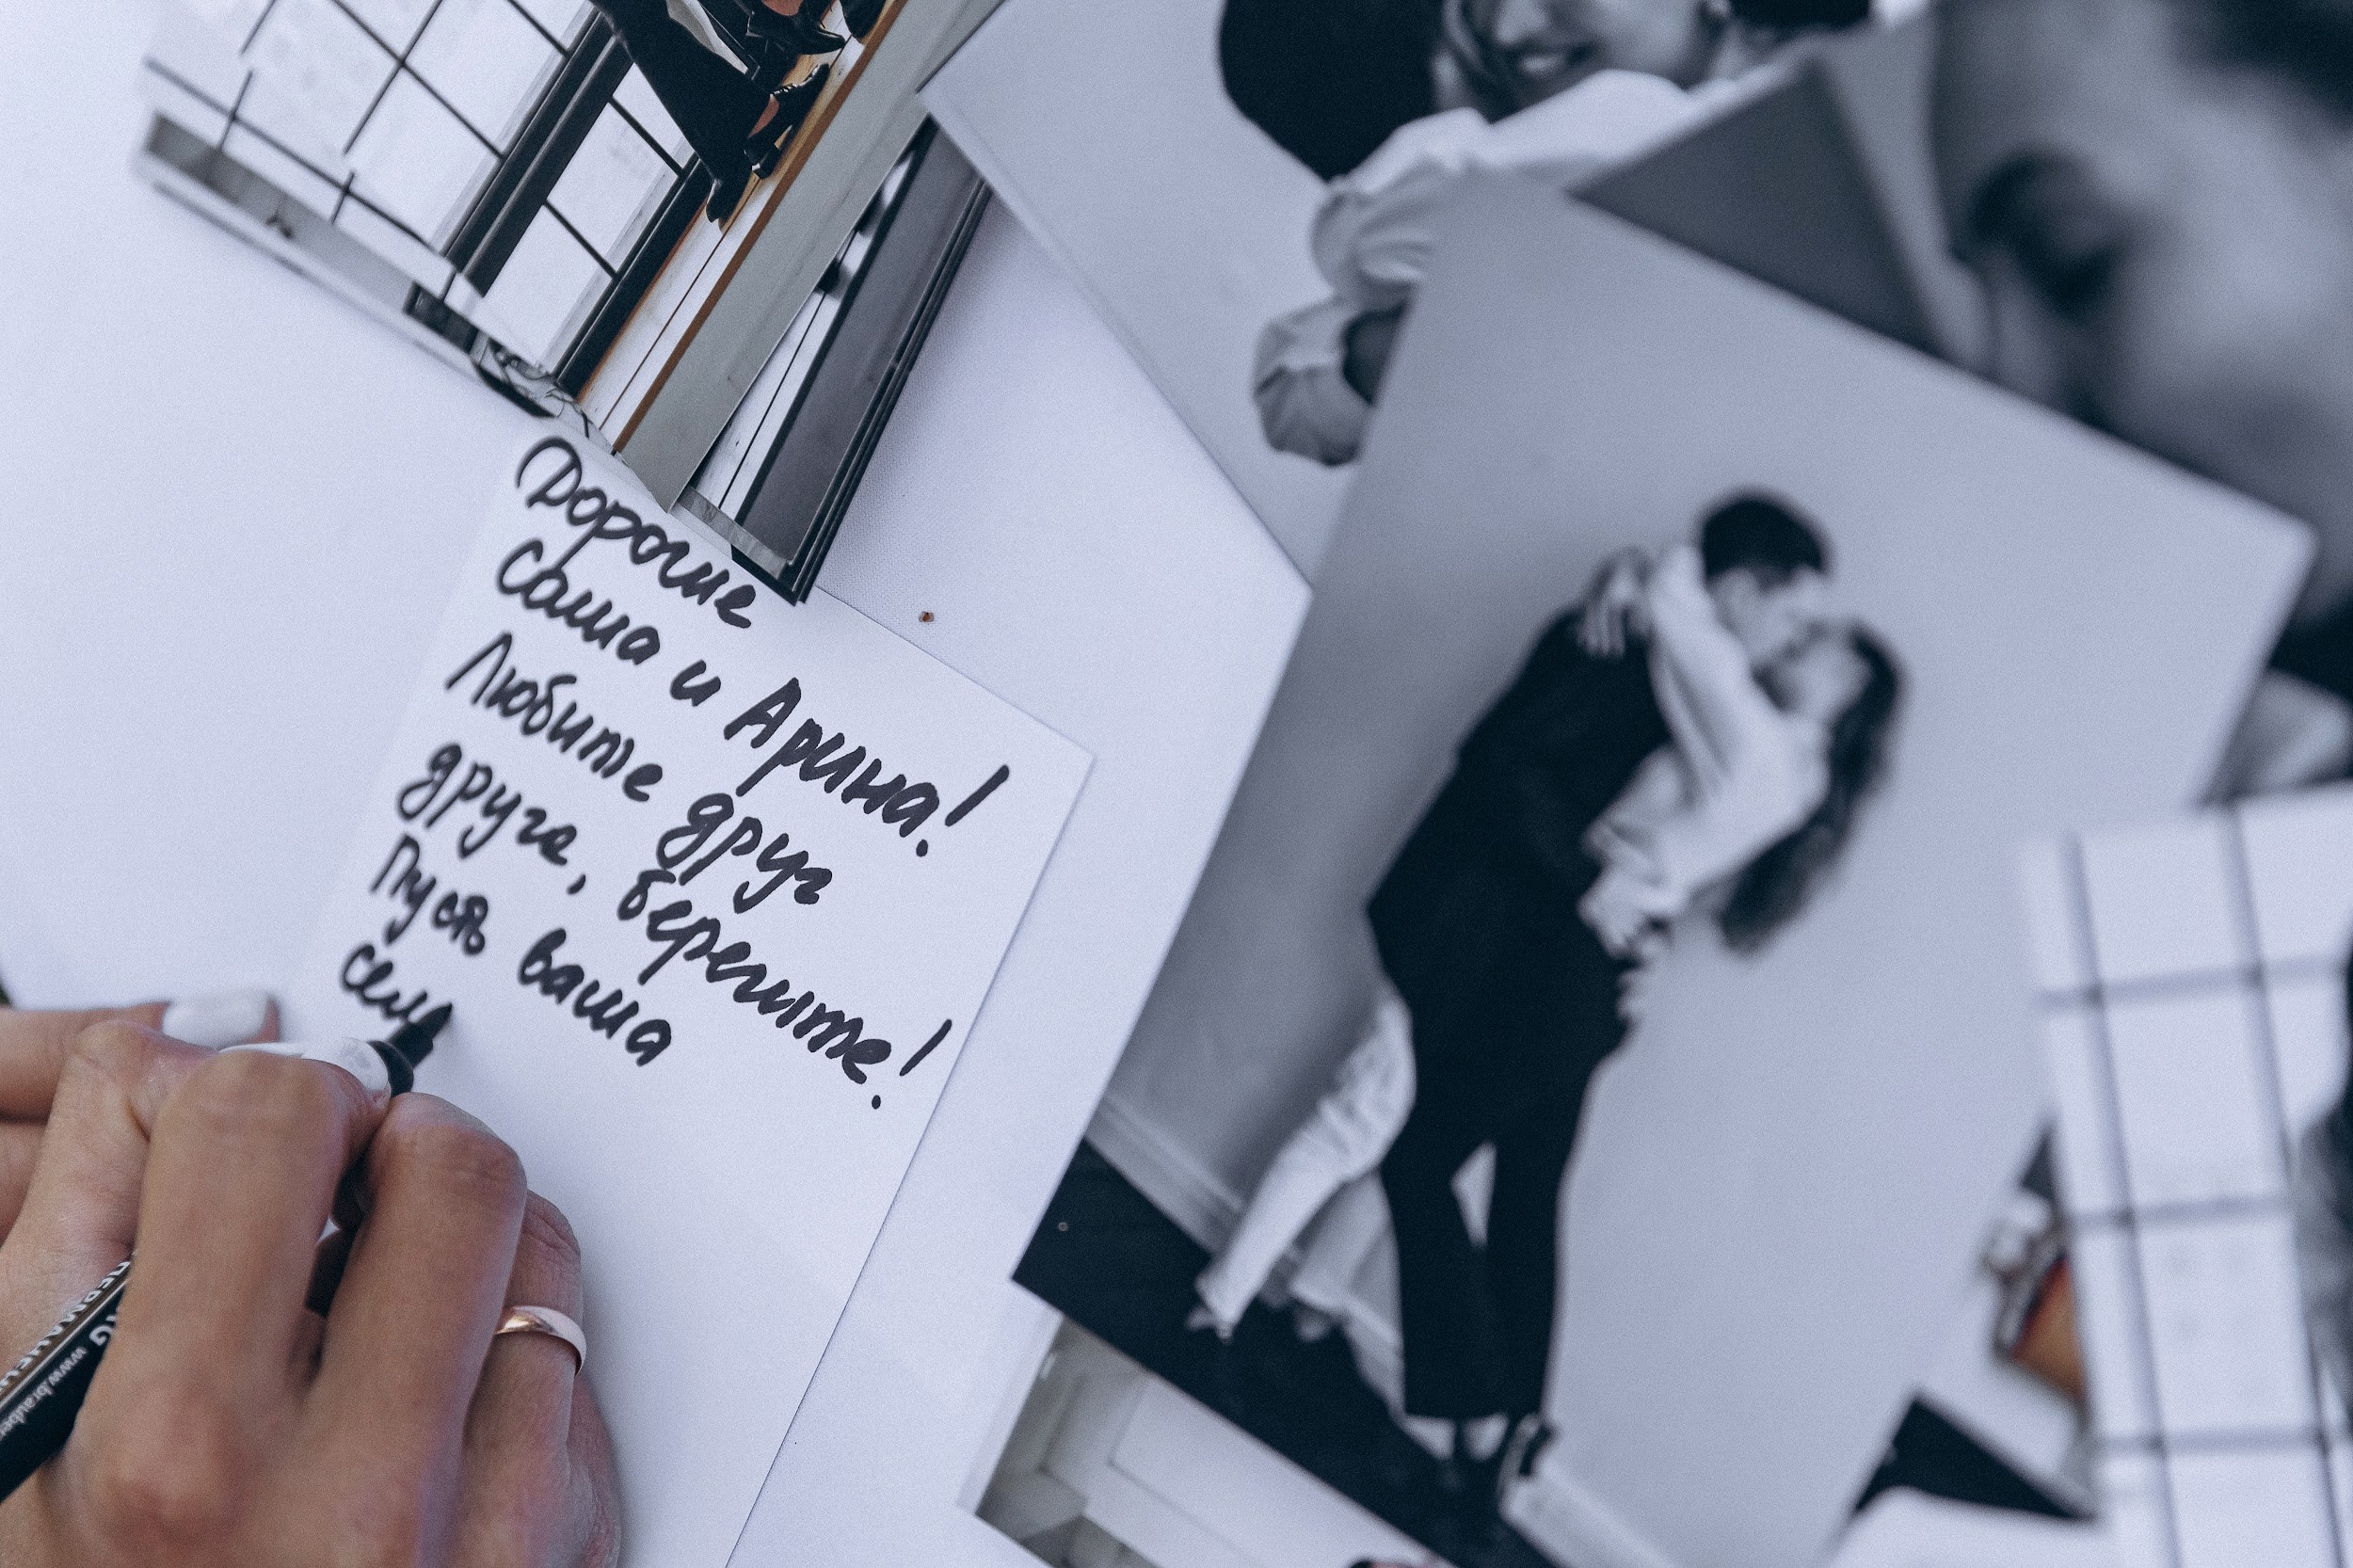 Дорогие
Саша и Арина!
Любите друг
друга, берегите!
Пусть ваша
семь
www.brauber